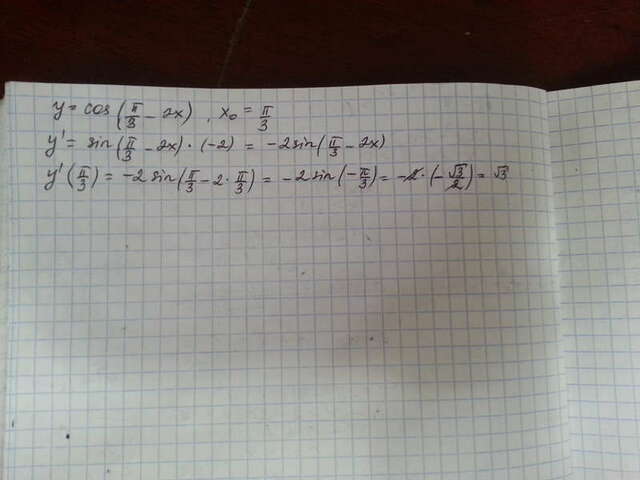 y = cos(π/3 - 2x), x₀ = π/3
y' = sin(π/3 - 2x) · (-2) = -2sin(π/3 - 2x)
y'(π/3) = -2 sin(π/3 - 2 · π/3) = -2 sin(-π/3) = -2 · (-√3/2) = √3